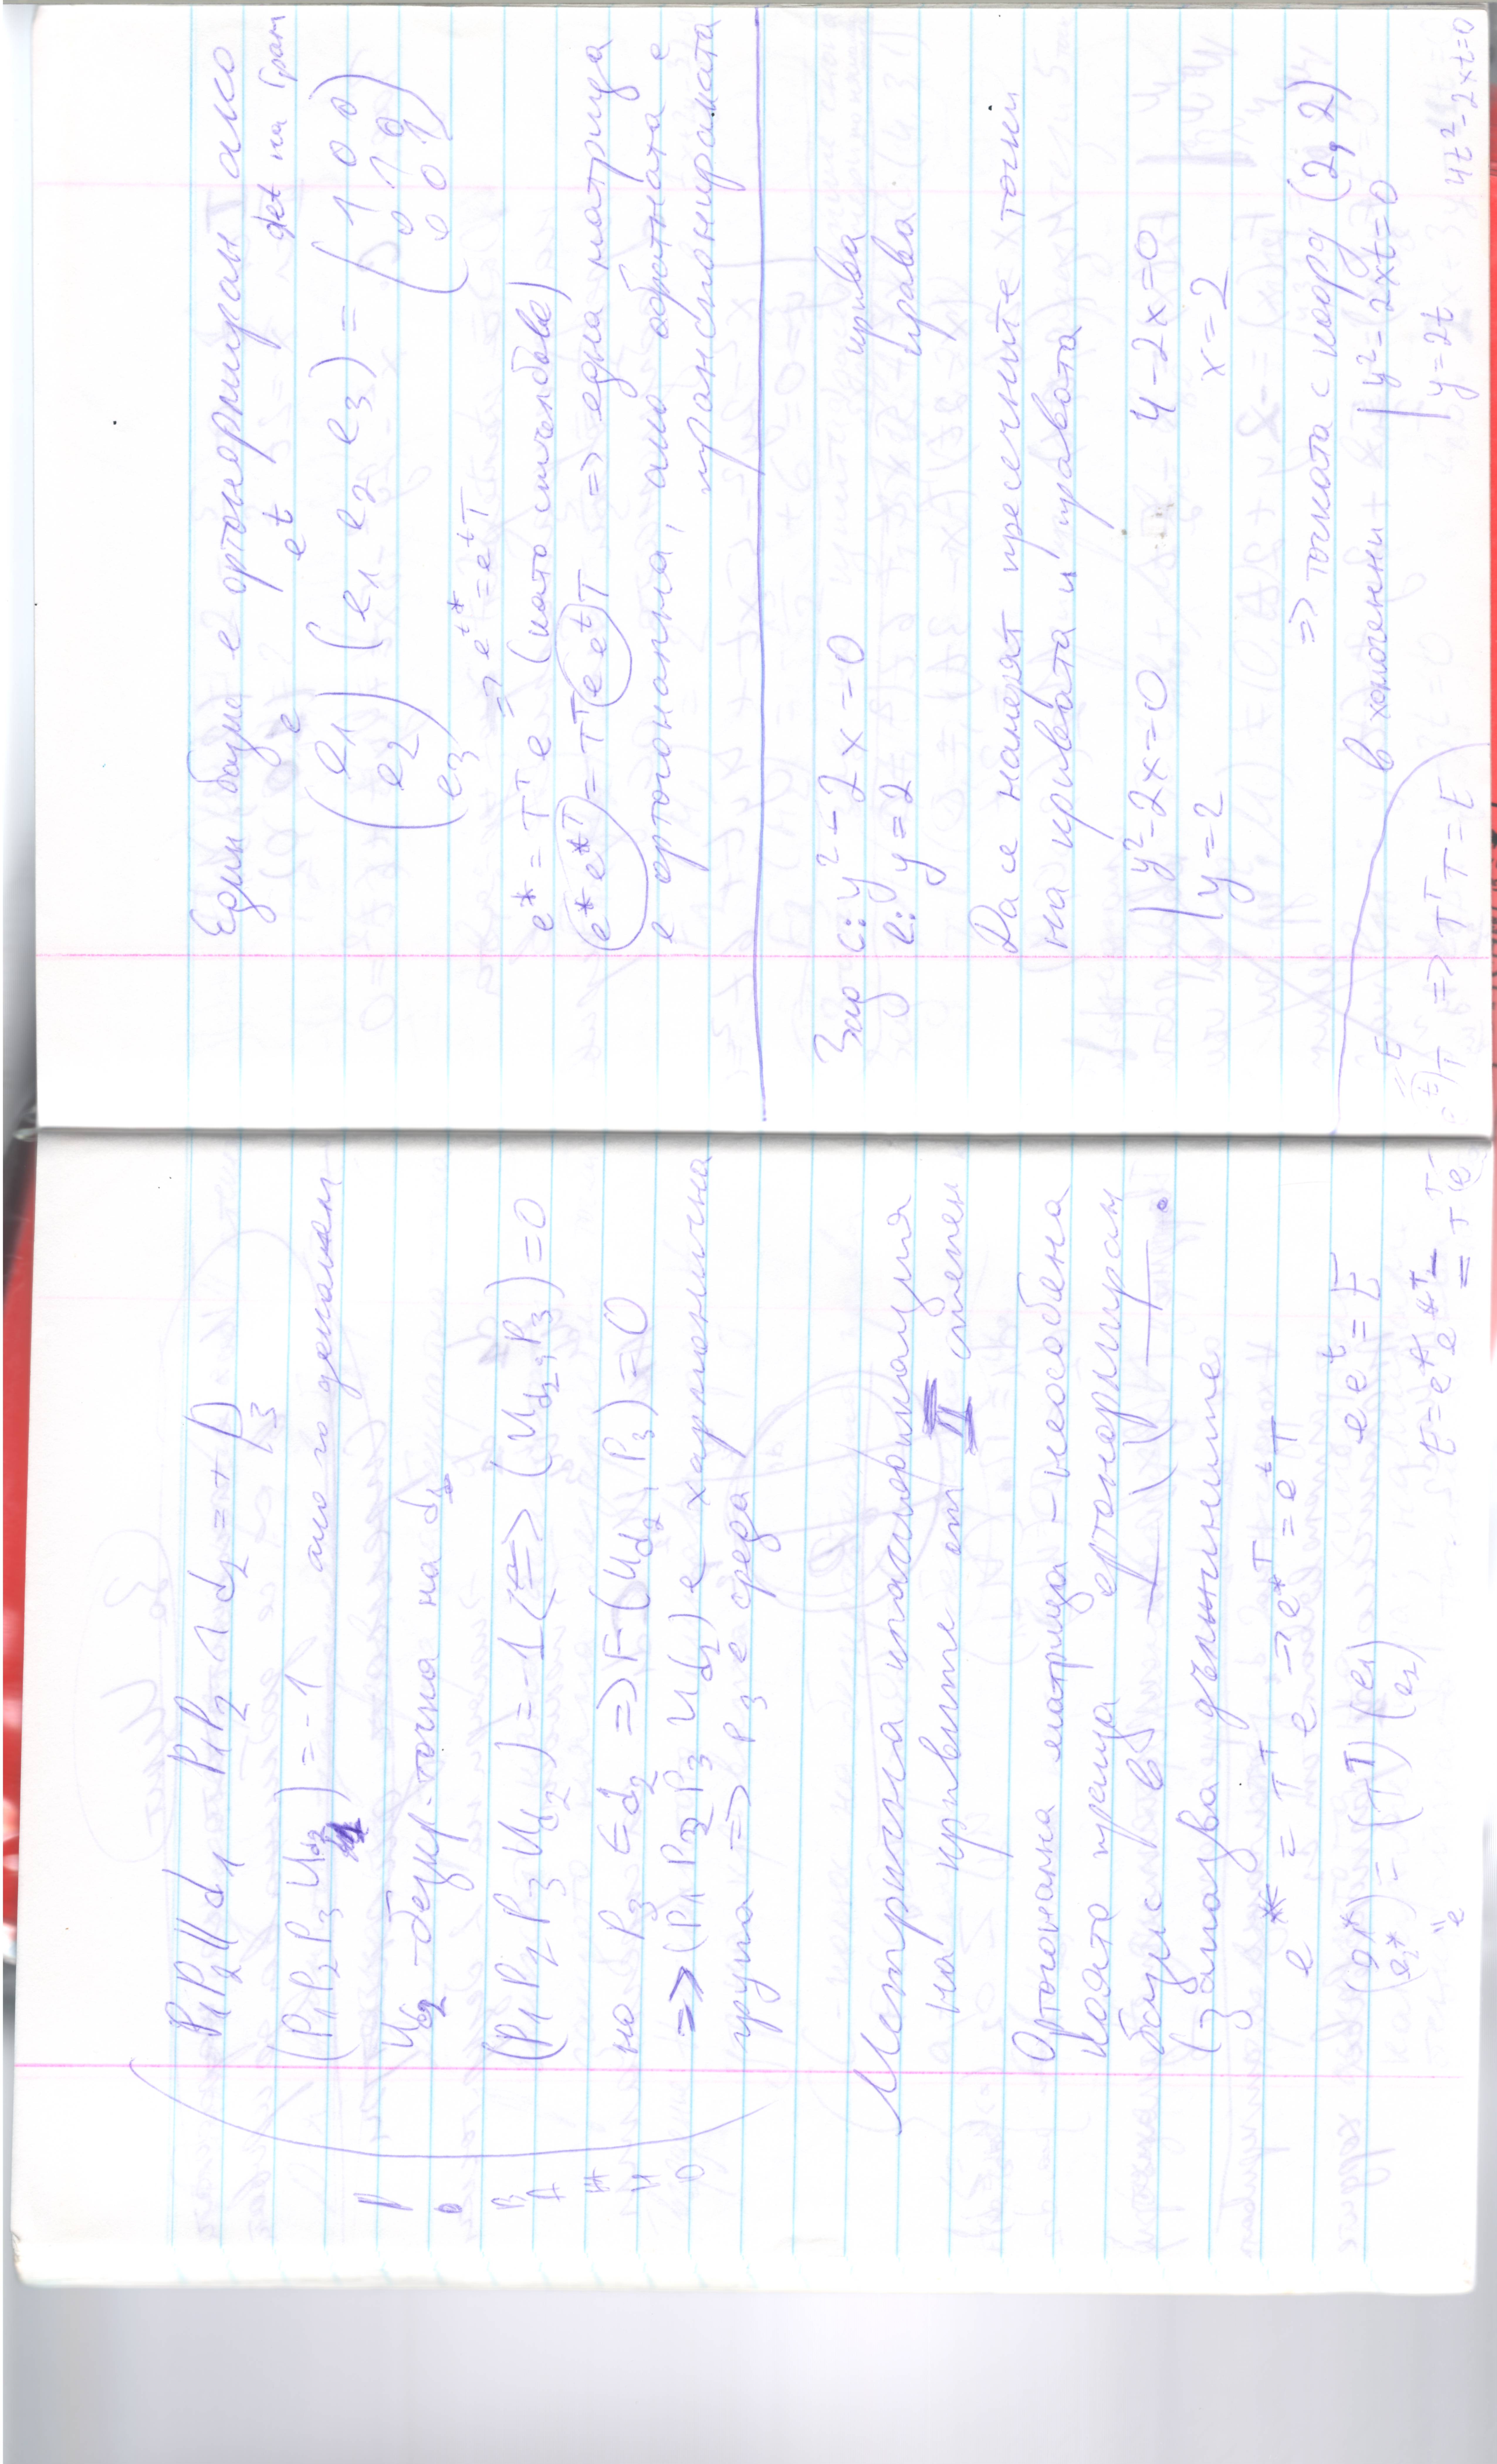 P₁P₂ ∥ d₁ P₁P₂ ∩ d₂ = + P₃
(P₁ P₂ P₃ U_d₂) = -1 ако го докажем
U_d₂ - безкр. точка на d₂
(P₁ P₂ P₃ U_d₂) = -1 (<=> (U_d₂, P₃) = 0
но P₃ ∈ d₂ => F(U_d₂, P₃) = 0
=> (P₁ P₂ P₃ U_d₂) е хармонична
група => P₃ е среда
Метрична класификация
на кривите от II степен
Ортогонална матрица - неособена
която праща ортонормиран
базис в —||—.
(запазва дължините
e* = Tᵀ e => e*ᵀ = eᵗ T
(e₁* e₂*) = (Tᵀ) (e₁ e₂) e eᵗ = E
"e
E = e* e*ᵀ =
Един базис e ортонормиран ако
e eᵗ det на Грам
(e₁ e₂ e₃) (e₁ e₂ e₃) = (1 0 0 0 1 0 0 0 1)
e* = Tᵀ e => eᵗ* = eᵗ T
(като стълбове)
(e* e*ᵀ) = Tᵀ (e eᵗ) T => една матрица
е ортогонална, ако обратната е
транспонираната
Зад c: y² - 2x = 0 крива
l: y = 2 права
Да се намерят пресечните точки
на кривата и правата
| y² - 2x = 0 4 - 2x = 0
| y = 2 x = 2
=> точката с коорд (2, 2)
в хомогенни | y² - 2xt = 0
| y = 2t 4t² - 2xt = 0
=> Tᵀ T = E